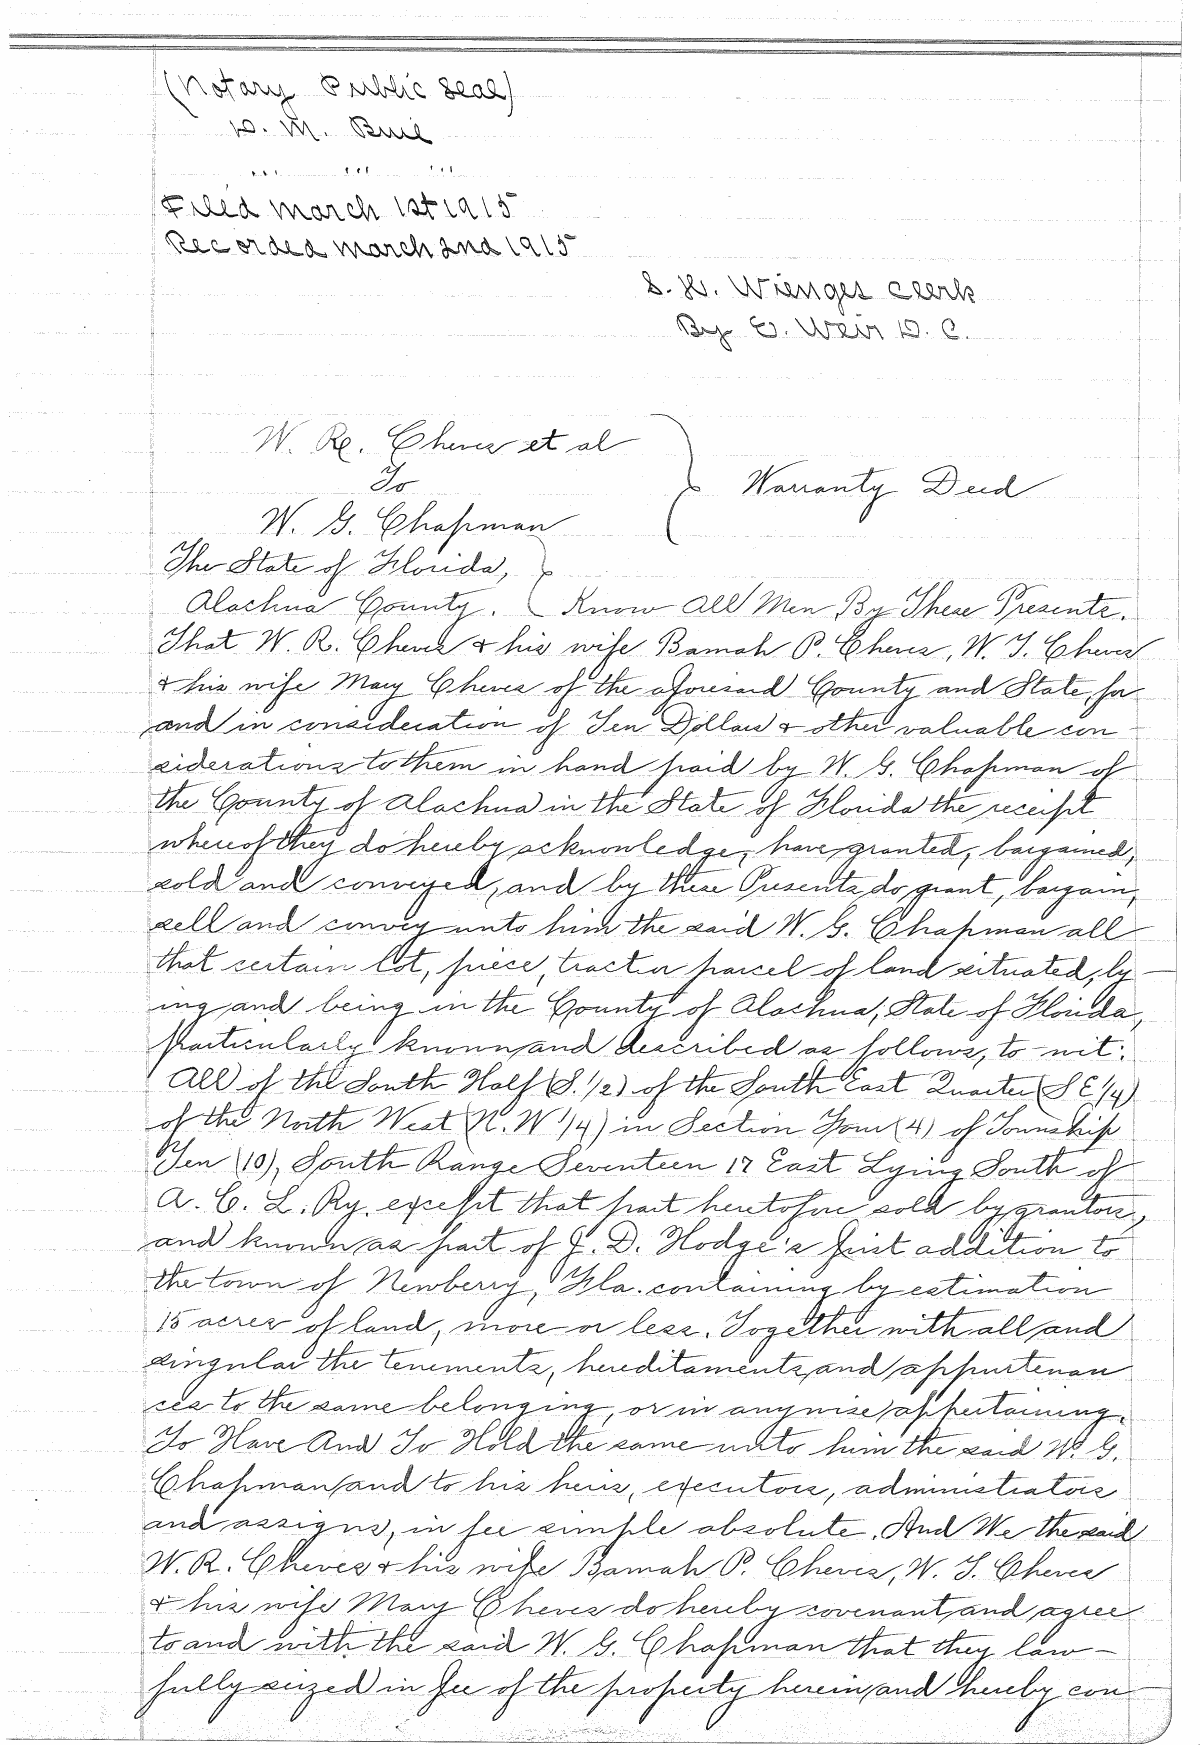 (Notary Public Seal)
D. M. Buie
" " "
Filed March 1st 1915
Recorded March 2nd 1915
S. H. Wienges Clerk
By E. Weir D. C.
W. R. Cheves et al
To
Warranty Deed
W. G. Chapman
The State of Florida,
Alachua County. Know All Men By These Presents.
That W. R. Cheves & his wife Bamah P. Cheves, W. T. Cheves
& his wife Mary Cheves of the aforesaid County and State, for
and in consideration of Ten Dollars & other valuable con-
siderations to them in hand paid by W. G. Chapman of
the County of Alachua in the State of Florida the receipt
whereof they do hereby acknowledge, have granted, bargained,
sold and conveyed, and by these Presents do grant, bargain,
sell and convey unto him the said W. G. Chapman all
that certain lot, piece, tract or parcel of land situated, ly-
ing and being in the County of Alachua, State of Florida,
particularly known and described as follows, to-wit:
All of the South Half (S. 1/2) of the South East Quarter (S E 1/4)
of the North West (N. W 1/4) in Section Four (4) of Township
Ten (10), South Range Seventeen 17 East Lying South of
A. C. L. Ry. except that part heretofore sold by grantors,
and known as part of J. D. Hodge's first addition to
the town of Newberry, Fla. containing by estimation
15 acres of land, more or less. Together with all and
singular the tenements, hereditaments and appurtenan
ces to the same belonging, or in anywise appertaining.
To Have And To Hold the same unto him the said W. G.
Chapman and to his heirs, executors, administrators
and assigns, in fee simple absolute. And We the said
W. R. Cheves & his wife Bamah P. Cheves, W. T. Cheves
& his wife Mary Cheves do hereby covenant and agree
to and with the said W. G. Chapman that they law-
fully seized in fee of the property herein and hereby con-